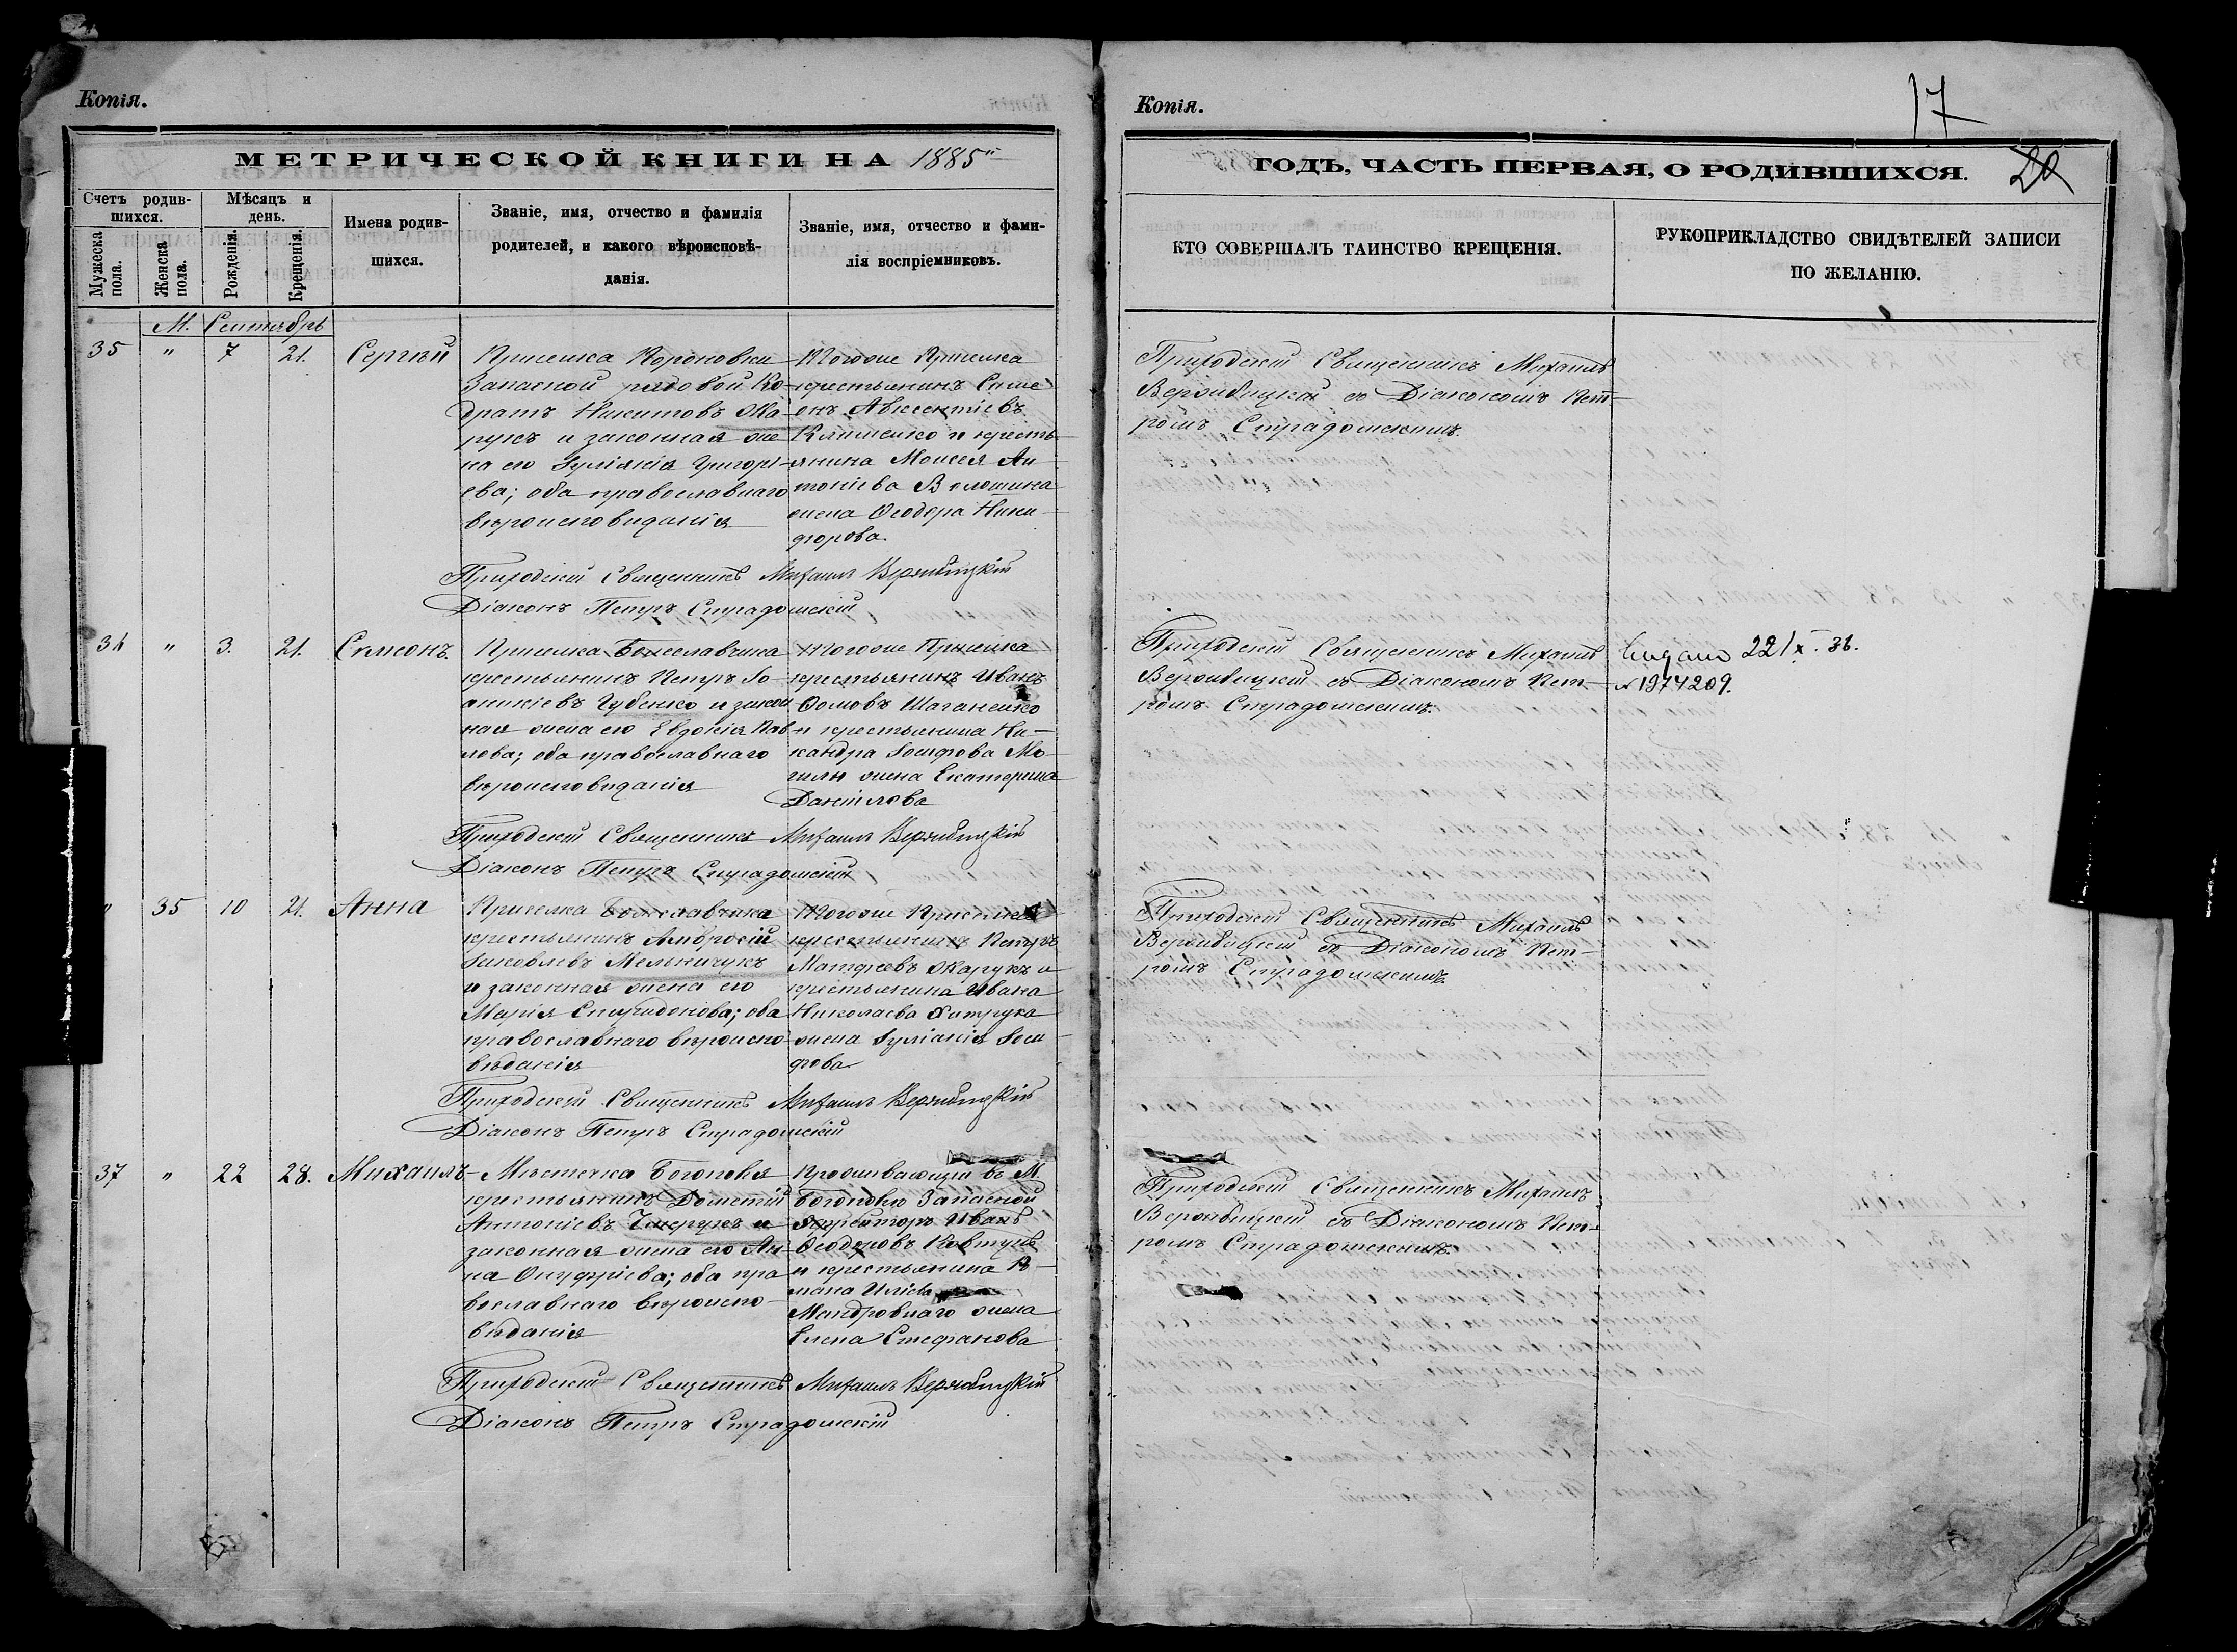 Копія.
МЕТРИЧЕСКОЙ КНИГИ НА 1885
Счетъ родив-
шихся.
Мѣсяцъ и
день.
Имена родив-
шихся.
Званіе, имя, отчество и фамилія
родителей, и какого вѣроисповѣ-
данія.
Званіе, имя, отчество и фами-
лія воспріемниковъ.
Мужеска
пола.
Женска
пола.
Рожденія.
Крещенія.
М. Сентябрь
35 " 7 21. Сергѣй
Приселка Короновки
Запасной рядовой Ко-
дратъ Никитовъ Жа-
рукъ и законная же
на его Іуліянія Григорі-
ева; оба православнаго
вѣроисповѣданія
Тогоже Приселка
крестьянинъ Симе
онъ Авксентіевъ
Клименко и кресть-
янина Моисея Ан
тоніева Волошина
жена Ѳеодора Ники-
форова
Приходскій Священникъ Михаилъ Вержбицкій
Діаконъ Петръ Страдомскій
36 " 3. 21. Симеонъ
Приселка Болеславчика
крестьянинъ Петръ Іо-
аникіевъ Губенко и закон
ная жена его Евдокія Пав
лова; оба православнаго
вѣроисповѣданія
Тогоже Приселка
крестьянинъ Иванъ
Ѳомовъ
и крестьянина Ни-
кандра Іосифова Мо-
гилы жена Екатерина
Даніилова
Приходскій Священникъ Михаилъ Вержбицкій
Діаконъ Петръ Страдомскій
" 35 10 21. Анна
Приселка Болеславчика
крестьянинъ Амвросій
Іаковлевъ Мельничукъ
и законная жена его
Марія Спиридонова; оба
православнаго вѣроиспо
вѣданія
Тогоже Приселка
крестьянинъ Петръ
Матфеевъ Жарукъ и
крестьянина Ивана
Николаева Хитрука
жена Іуліанія Іоси-
фова
Приходскій Священникъ Михаилъ Вержбицкій
Діаконъ Петръ Страдомскій
37 " 22 28. Михаилъ
Мѣстечка Богополя
крестьянинъ Дометій
Антоніевъ и
законная жена его Ан-
на Онуфріева; оба пра
вославнаго вѣроиспо-
вѣданія
Проживающій въ М.
Богополѣ Запасной
Ефрейторъ Иванъ
Ѳеодоровъ Ковтунъ
и крестьянина Ро-
мана Иліева
Мандровнаго жена
Елена Стефанова
Приходскій Священникъ Михаилъ Вержбицкій
Діаконъ Петръ Страдомскій
Копія.
17
20
ГОДЪ, ЧАСТЬ ПЕРВАЯ, О РОДИВШИХСЯ.
КТО СОВЕРШАЛЪ ТАИНСТВО КРЕЩЕНІЯ.
РУКОПРИКЛАДСТВО СВИДѢТЕЛЕЙ ЗАПИСИ
ПО ЖЕЛАНІЮ.
Приходскій Священникъ Михаилъ
Вержбицкій съ Діакономъ Пет-
ромъ Страдомскимъ.
Приходскій Священникъ Михаилъ
Вержбицкій съ Діакономъ Пет-
ромъ Страдомскимъ.
Видано 22/X. 36.
№ 1974209.
Приходскій Священникъ Михаилъ
Вержбицкій съ Діакономъ Пет-
ромъ Страдомскимъ.
Приходскій Священникъ Михаилъ
Вержбицкій съ Діакономъ Пет-
ромъ Страдомскимъ.